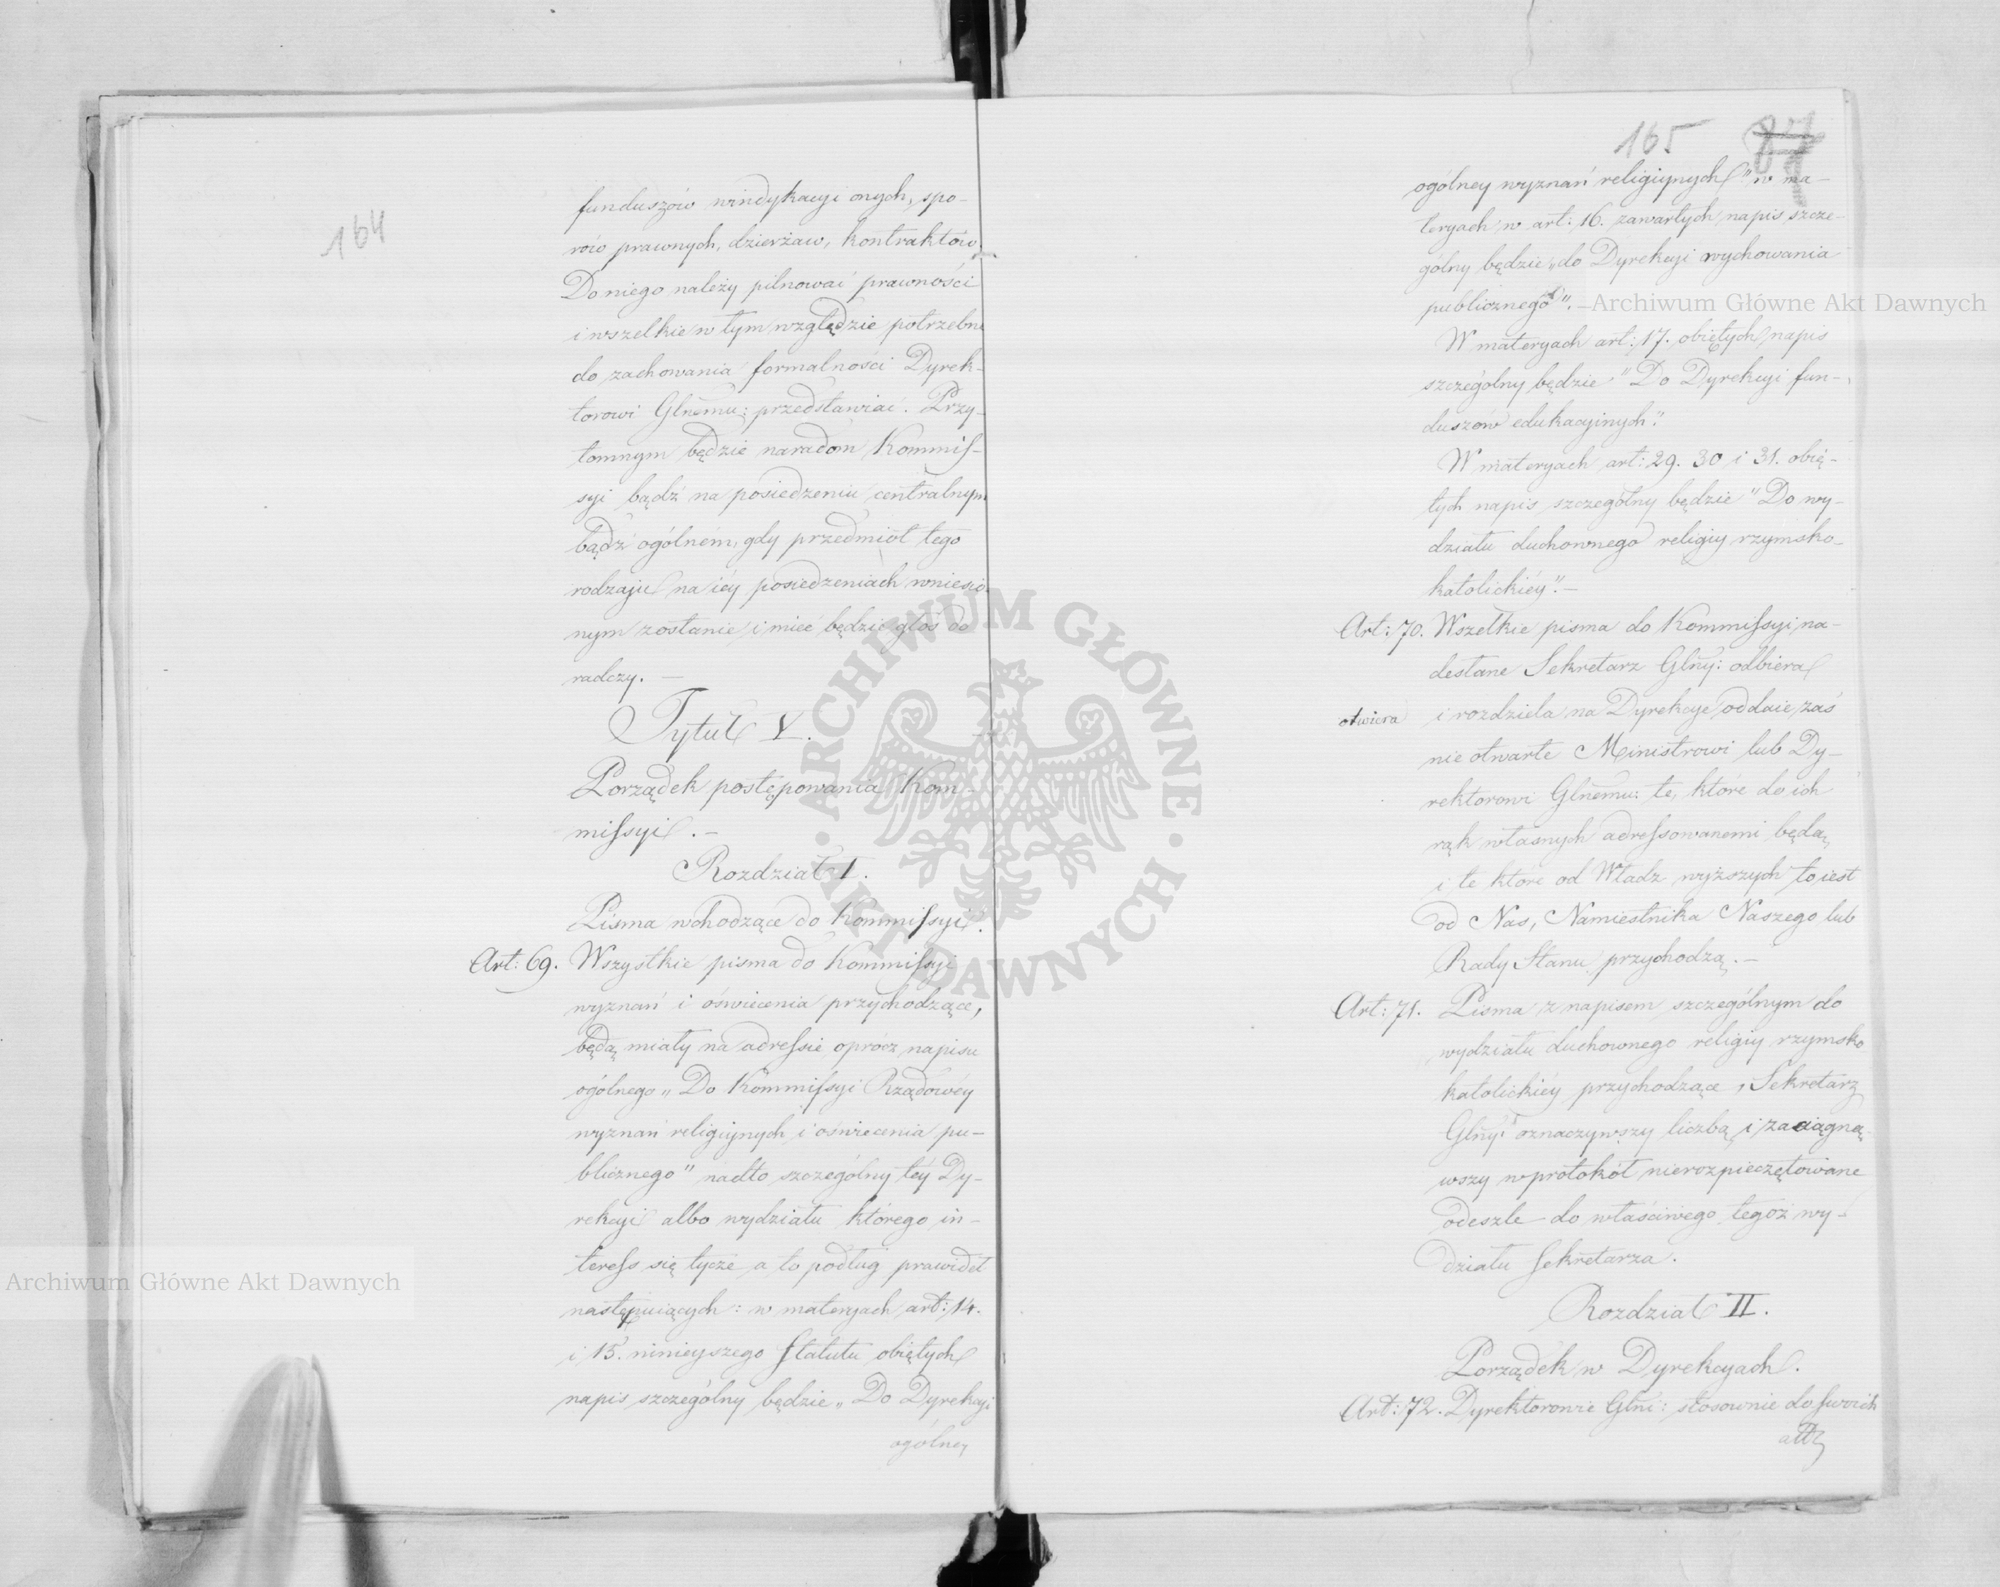 164
funduszów windykacyi onych, spo-
rów prawnych, dzierżaw, kontraktów.
Do niego należy pilnować prawności
i wszelkie w tym względzie potrzebne
do zachowania formalności Dyrek-
torowi Glnemu: przedstawiać. Przy-
tomnym będzie naradom Kommis-
syi bądź na posiedzeniu centralnym
bądź ogólném, gdy przedmiot tego
rodzaju na iéy posiedzeniach wniesio-
nym zostanie i mieć będzie głos do
radczy. —
Tytuł V.
Porządek postępowania Kom-
missyi. —
Rozdział I.
Pisma wchodzące do Kommissyi.
Art: 69. Wszystkie pisma do Kommissyi
wyznań i oświecenia przychodzące,
będą miały na adressie oprócz napisu
ogólnego „Do Kommissyi Rządowéy
wyznań religiynych i oświecenia pu-
blicznego" nadto szczególny téy Dy-
rekcyi albo wydziału którego in-
teress się tycze a to podług prawideł
następuiących: w materyach art: 14.
i 15. ninieyszego Statutu obiętych
napis szczególny będzie „Do Dyrekcyi
ogólney
165 87
ogólney wyznań religiynych" w ma-
teryach w art: 16. zawartych napis szcze-
gólny będzie „do Dyrekcyi wychowania
publicznego". —
W materyach art: 17. obiętych napis
szczególny będzie "Do Dyrekcyi fun-
duszów edukacyinych".
W materyach art: 29. 30 i 31. obię-
tych napis szczególny będzie "Do wy-
działu duchownego religiy rzymsko-
katolickiéy". —
Art: 70. Wszelkie pisma do Kommissyi na-
desłane Sekretarz Glny: odbiera
otwiera i rozdziela na Dyrekcye oddaie zaś
nie otwarte Ministrowi lub Dy-
rektorowi Glnemu: te, które do ich
rąk własnych adressowanemi będą
i te które od Władz wyższych to iest
od Nas, Namiestnika Naszego lub
Rady Stanu przychodzą. —
Art: 71. Pisma z napisem szczególnym do
wydziału duchownego religiy rzymsko
katolickiéy przychodzące, Sekretarz
Glny: oznaczywszy liczbą i zaciągną-
wszy w protokół nierozpieczętowane
odeszle do właściwego tegoż wy-
działu Sekretarza.
Rozdział II.
Porządek w Dyrekcyach.
Art: 72. Dyrektorowie Glni: stosownie do swoich
att
Archiwum Główne Akt Dawnych
Archiwum Główne Akt Dawnych
ARCHIWUM GŁÓWNE · AKT DAWNYCH ·